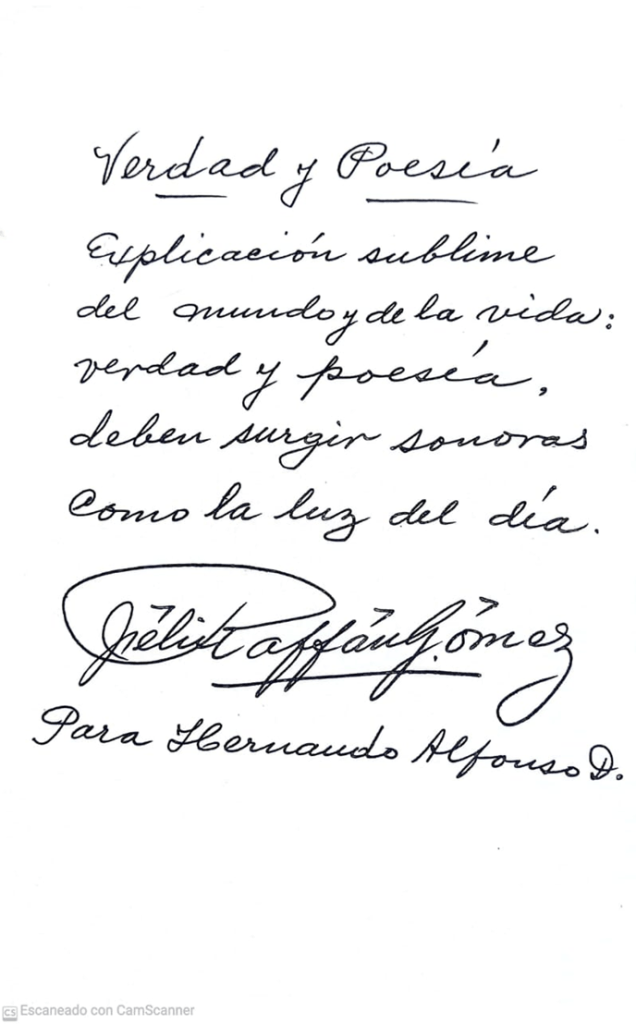 Verdad y Poesía
Explicación sublime
del mundo y de la vida:
verdad y poesía,
deben surgir sonoras
como la luz del día.
Félix Raffán Gómez
Para Hernando Alfonso D.
CS Escaneado con CamScanner